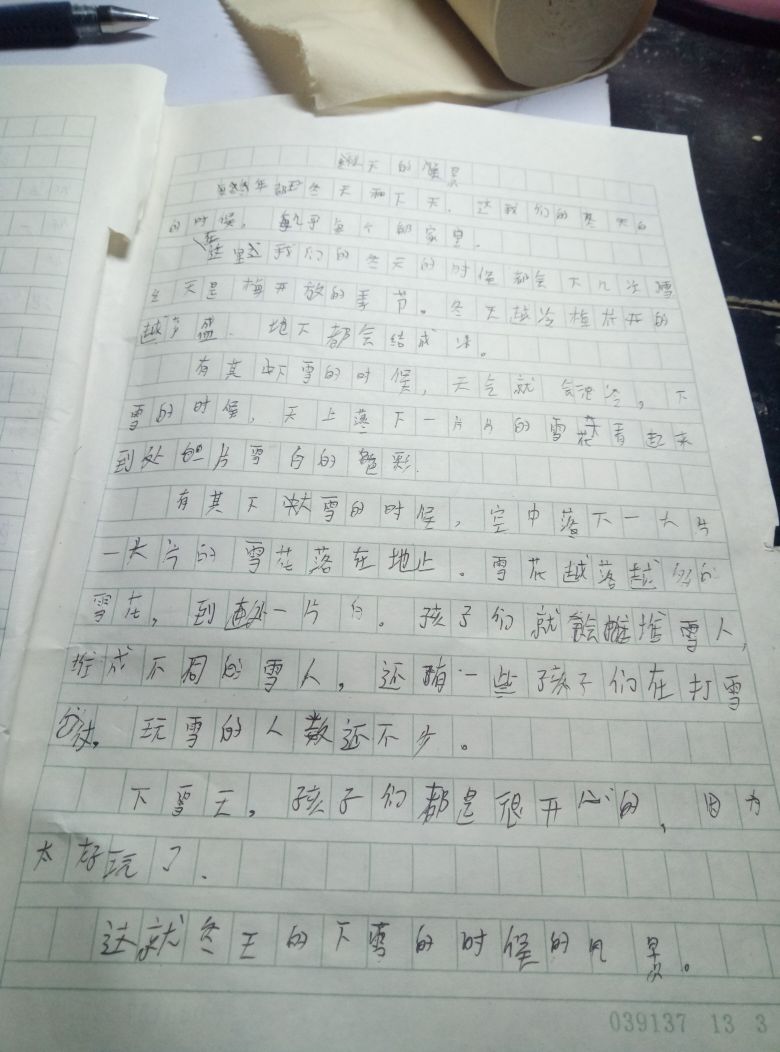 天的候景
每年都冬天和下天。这我们的冬天的
的时候，每个的家里。
在这里我们的冬天的时候都会下几次雪
冬天是梅开放的季节。冬天越冷植花开的
越盛、地下都会结成冰。
有其下雪的时候，天气就会冷，下
雪的时候，天上落下一片片的雪花看起来
到处片雪白的色彩.
有其下大雪的时候，空中落下一大片
一大片的雪花落在地上。雪花越落越的
雪花，到处一片白。孩子们就会堆雪人，
堆成不同的雪人，还有一些孩子们在打雪
仗。玩雪的人数还不少。
下雪天，孩子们都是很开心的，因为
太好玩了.
这就冬天的下雪的时候的风景。
039137 13 3